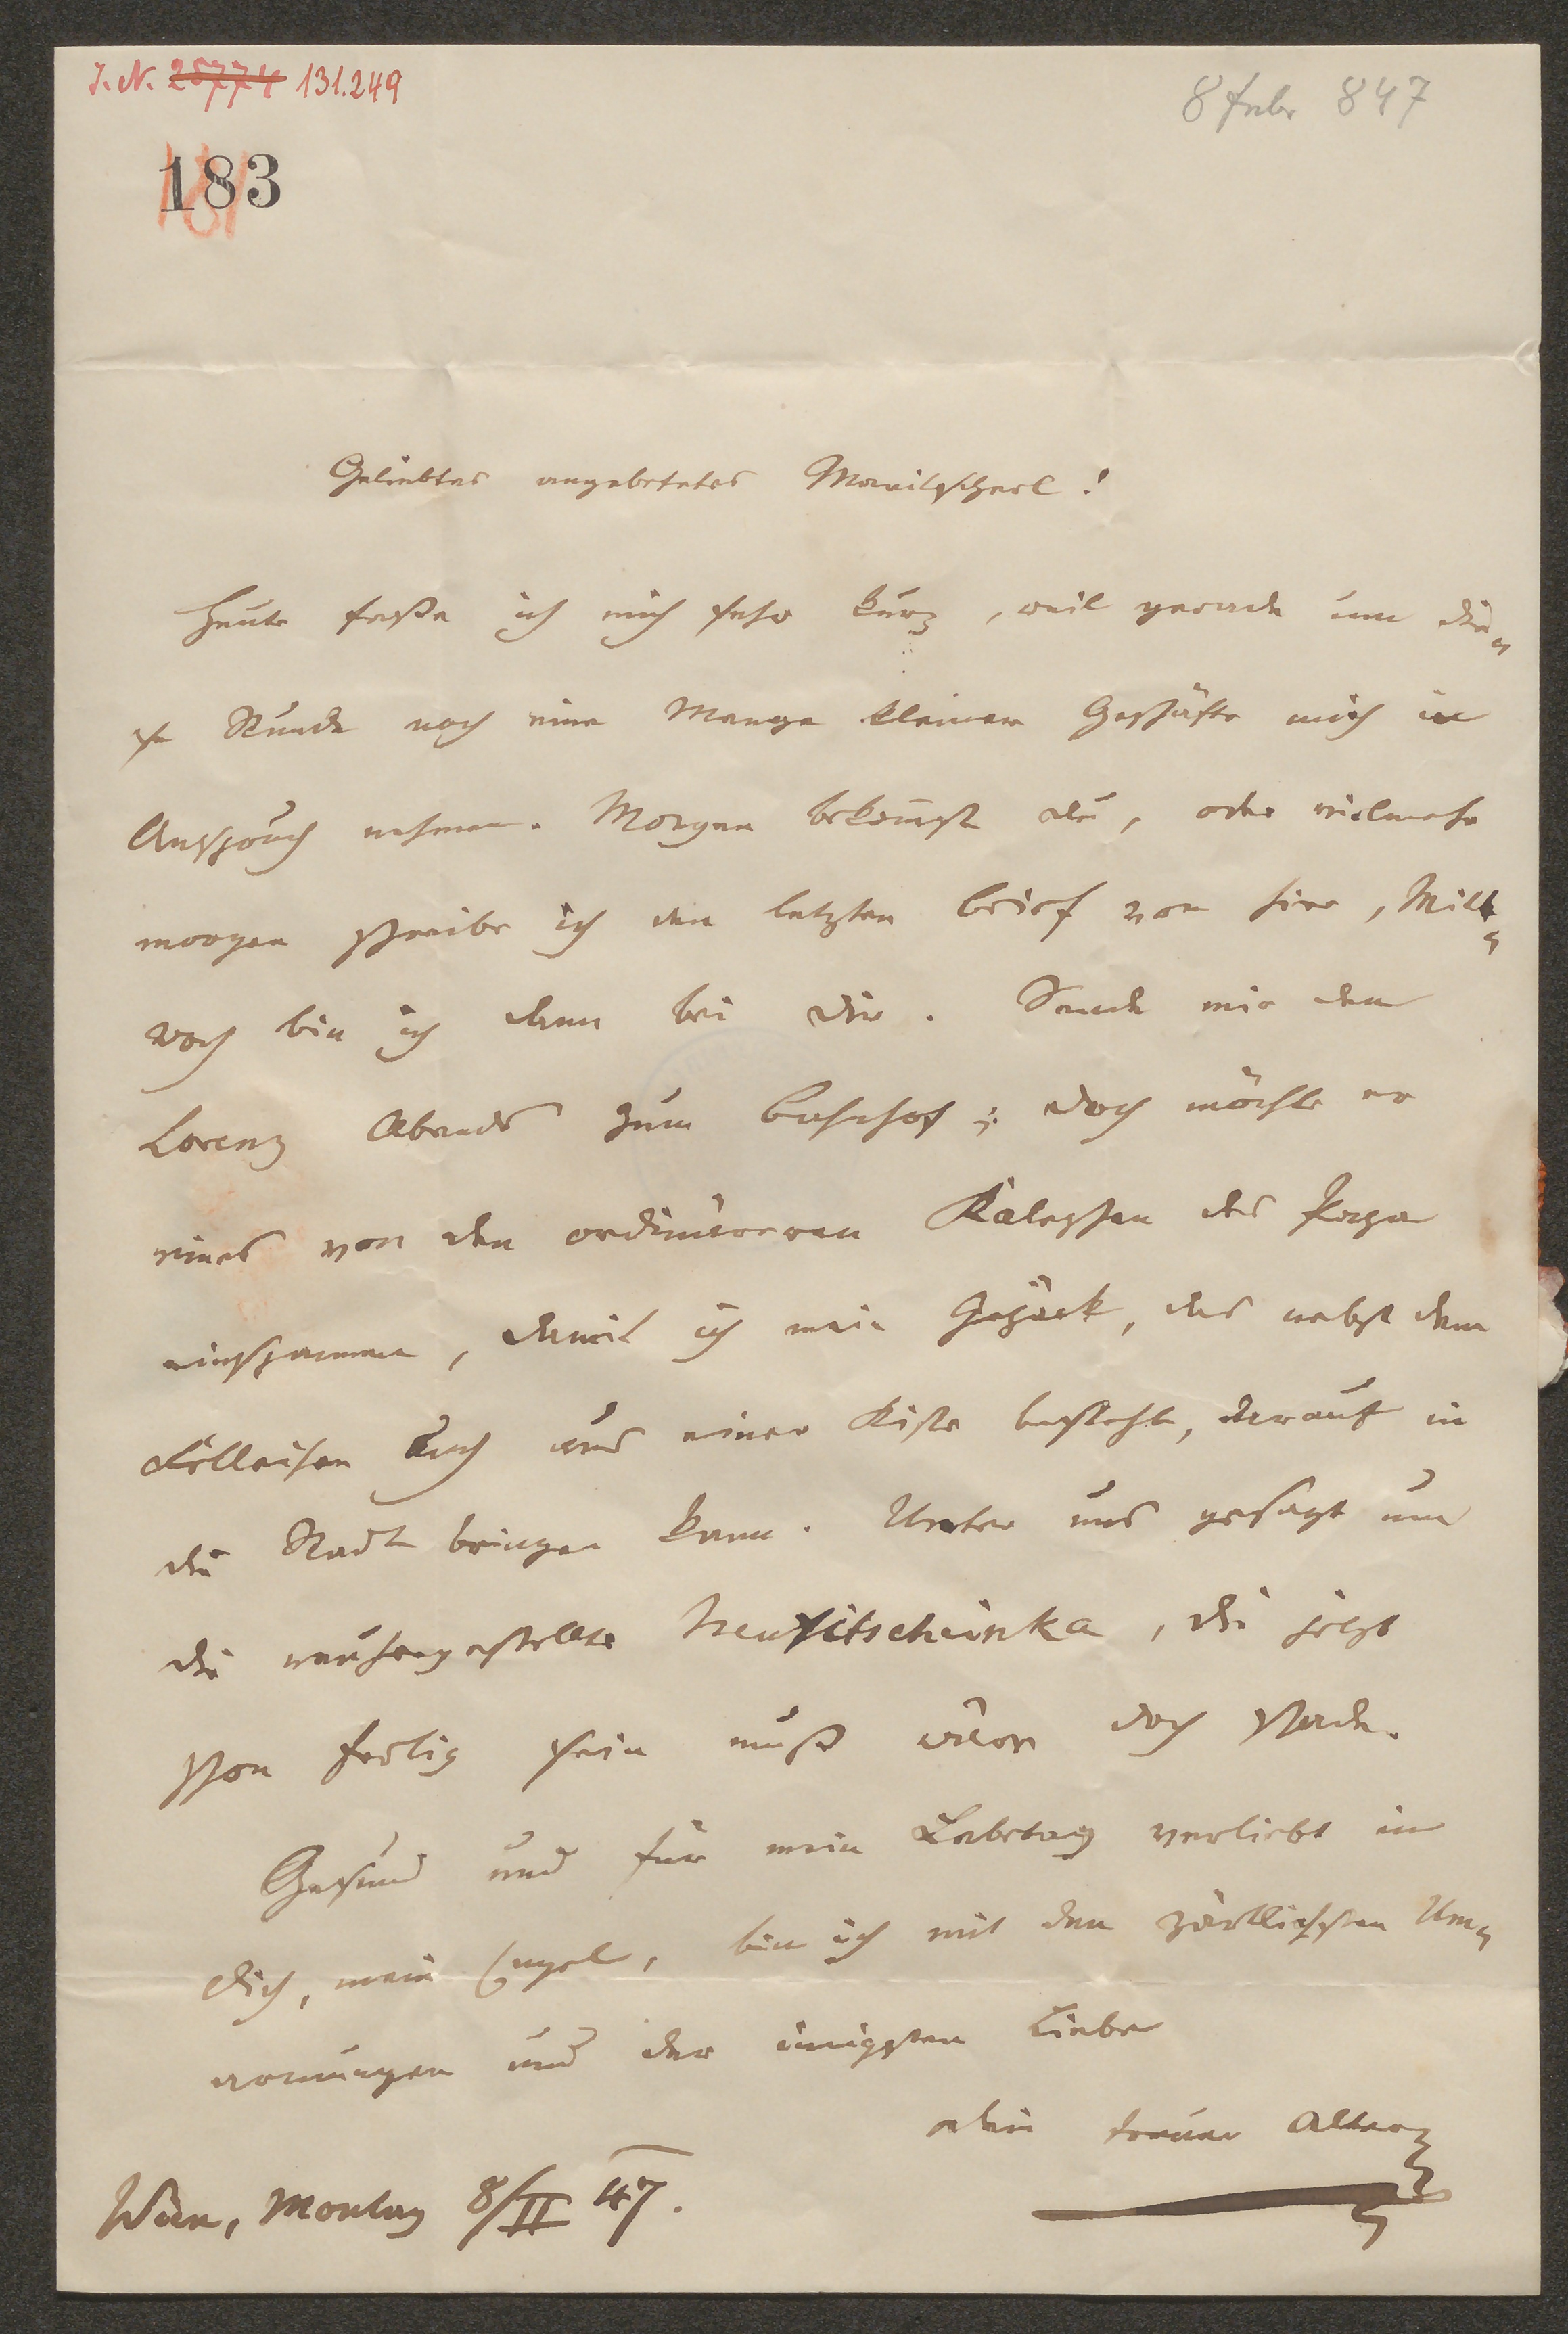 I. N. 25774 131.249
8 Febr 847
183
Geliebtes angebetetes Maritscherl!
Heute faße ich mich sehr kurz, weil gerade um die=
se Stunde noch eine Menge kleiner Geschäfte mich in
Anspruch nehmen. Morgen bekom̅st du, oder vielmehr
morgen schreibe ich den letzten Brief von hier, Mitt=
woch bin ich dann bei dir. Sende mir den
Lorenz Abends zum Bahnhof; doch möchte er
eines von den ordinäreren Kaleschen des Papa
einspannen, damit ich mein Gepäck, das nebst dem
Felleisen auch aus einer Kiste besteht, darauf in
die Stadt bringen kann. Unter uns gesagt um
die neuhergestellte Neutitscheinka, die jetzt
schon fertig sein muß wäre doch schade.
Gesund und für mein Lebetag verliebt in
dich, mein Engel, bin ich mit den zärtlichsten Um=
armungen und der innigsten Liebe
dein treuer Alter
Wien, Montag 8/II 47.